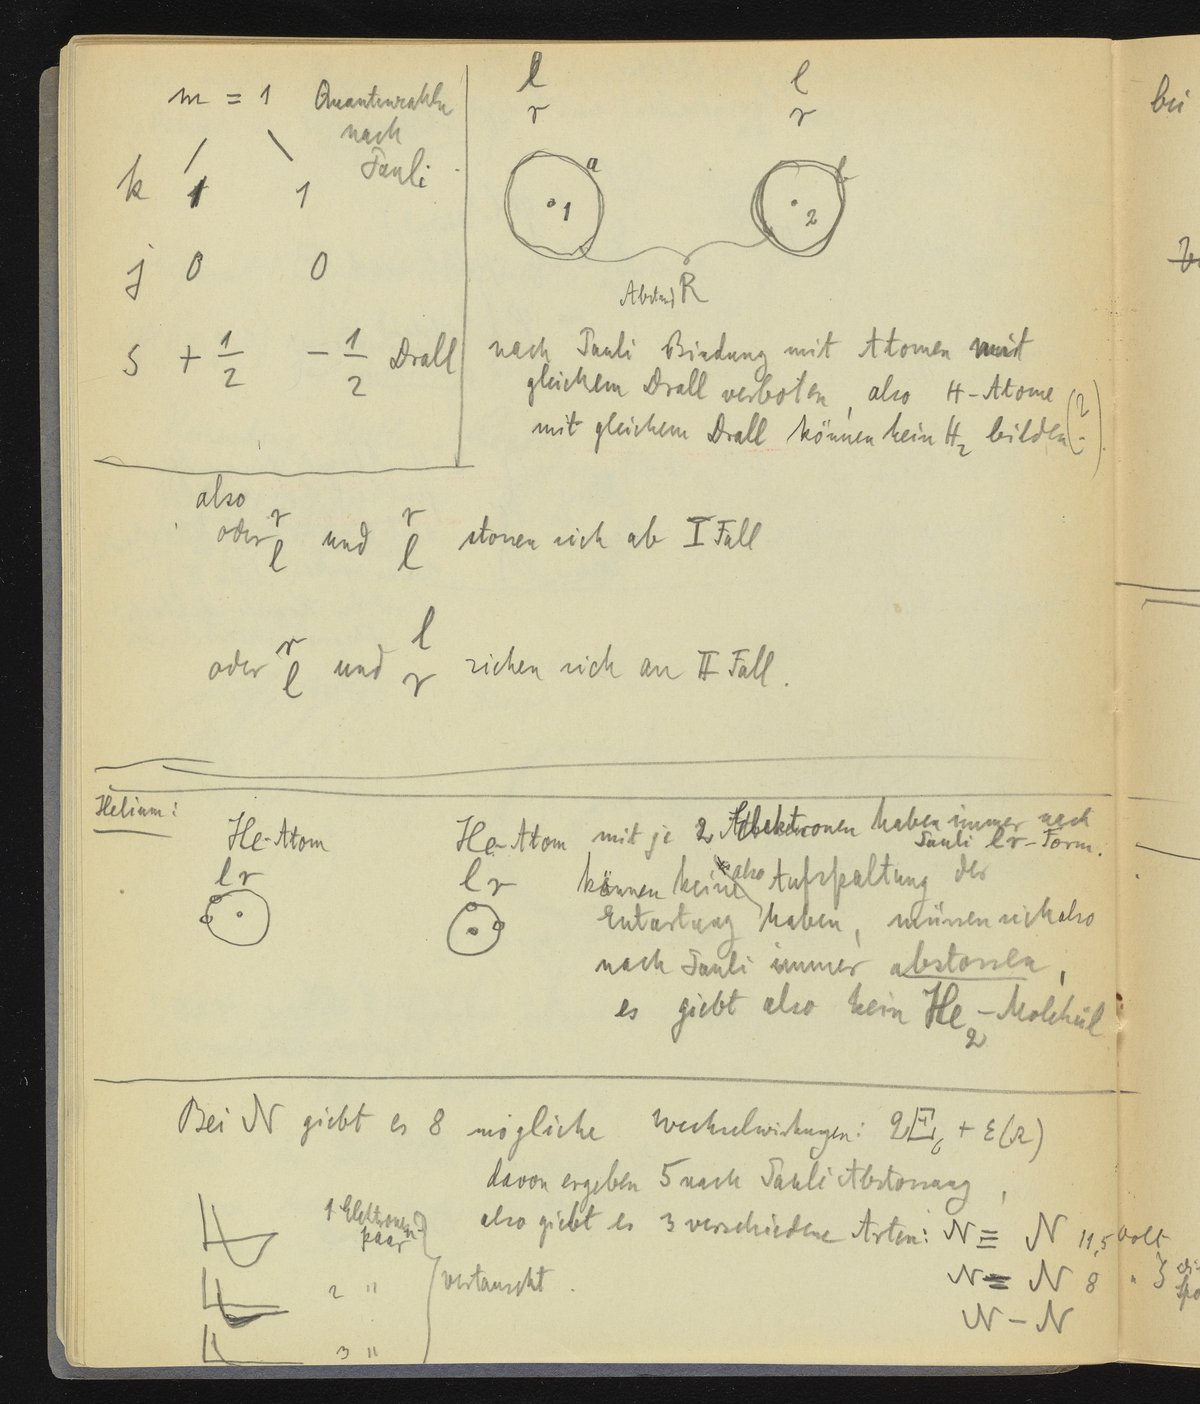 m = 1 Quantenzahlen
nach
Pauli
k 1 1
j 0 0
s + 1/2 - 1/2 Drall
l l
r r
a b
1 2
Abstand R
nach Pauli Bindung mit Atomen mit
gleichem Drall verboten, also H-Atome
mit gleichem Drall können kein H₂ bilden (?).
also
oder r/l und r/l stossen sich ab I Fall
oder r/l und l/r ziehen sich an II Fall.
Helium:
He-Atom He-Atom mit je 2 Elektronen haben immer nach
Pauli lr-Form.
lr lr können keine also Aufspaltung der
Entartung haben, müssen sich also
nach Pauli immer abstossen,
es giebt also kein He₂-Molekül
Bei N giebt es 8 mögliche Wechselwirkungen: 2E₀ + ε(R)
davon ergeben 5 nach Pauli Abstossung,
also giebt es 3 verschiedene Arten: N≡N 11,5 Volt
1 Elektronen-
paar
2 " vertauscht. N=N 8 "
N-N
3 "
bei